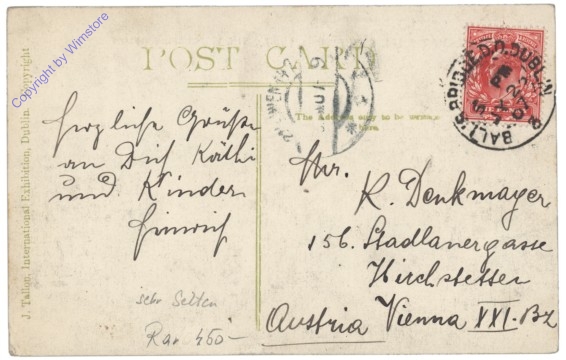 Copyright by Wimstore
J. Tallon, International Exhibition, Dublin. Copyright
POST CARD
The Address only to be written
here.
BALL'S BRIDGE B.O. DUBLIN
Herzliche Grüße
an Dich Käthi
und Kinder
Heinrich
Hr. K. Denkmayer
156. Stadlauergasse
Hirschstetten
Austria Vienna XXI. Bz
sehr selten
Rar 450-